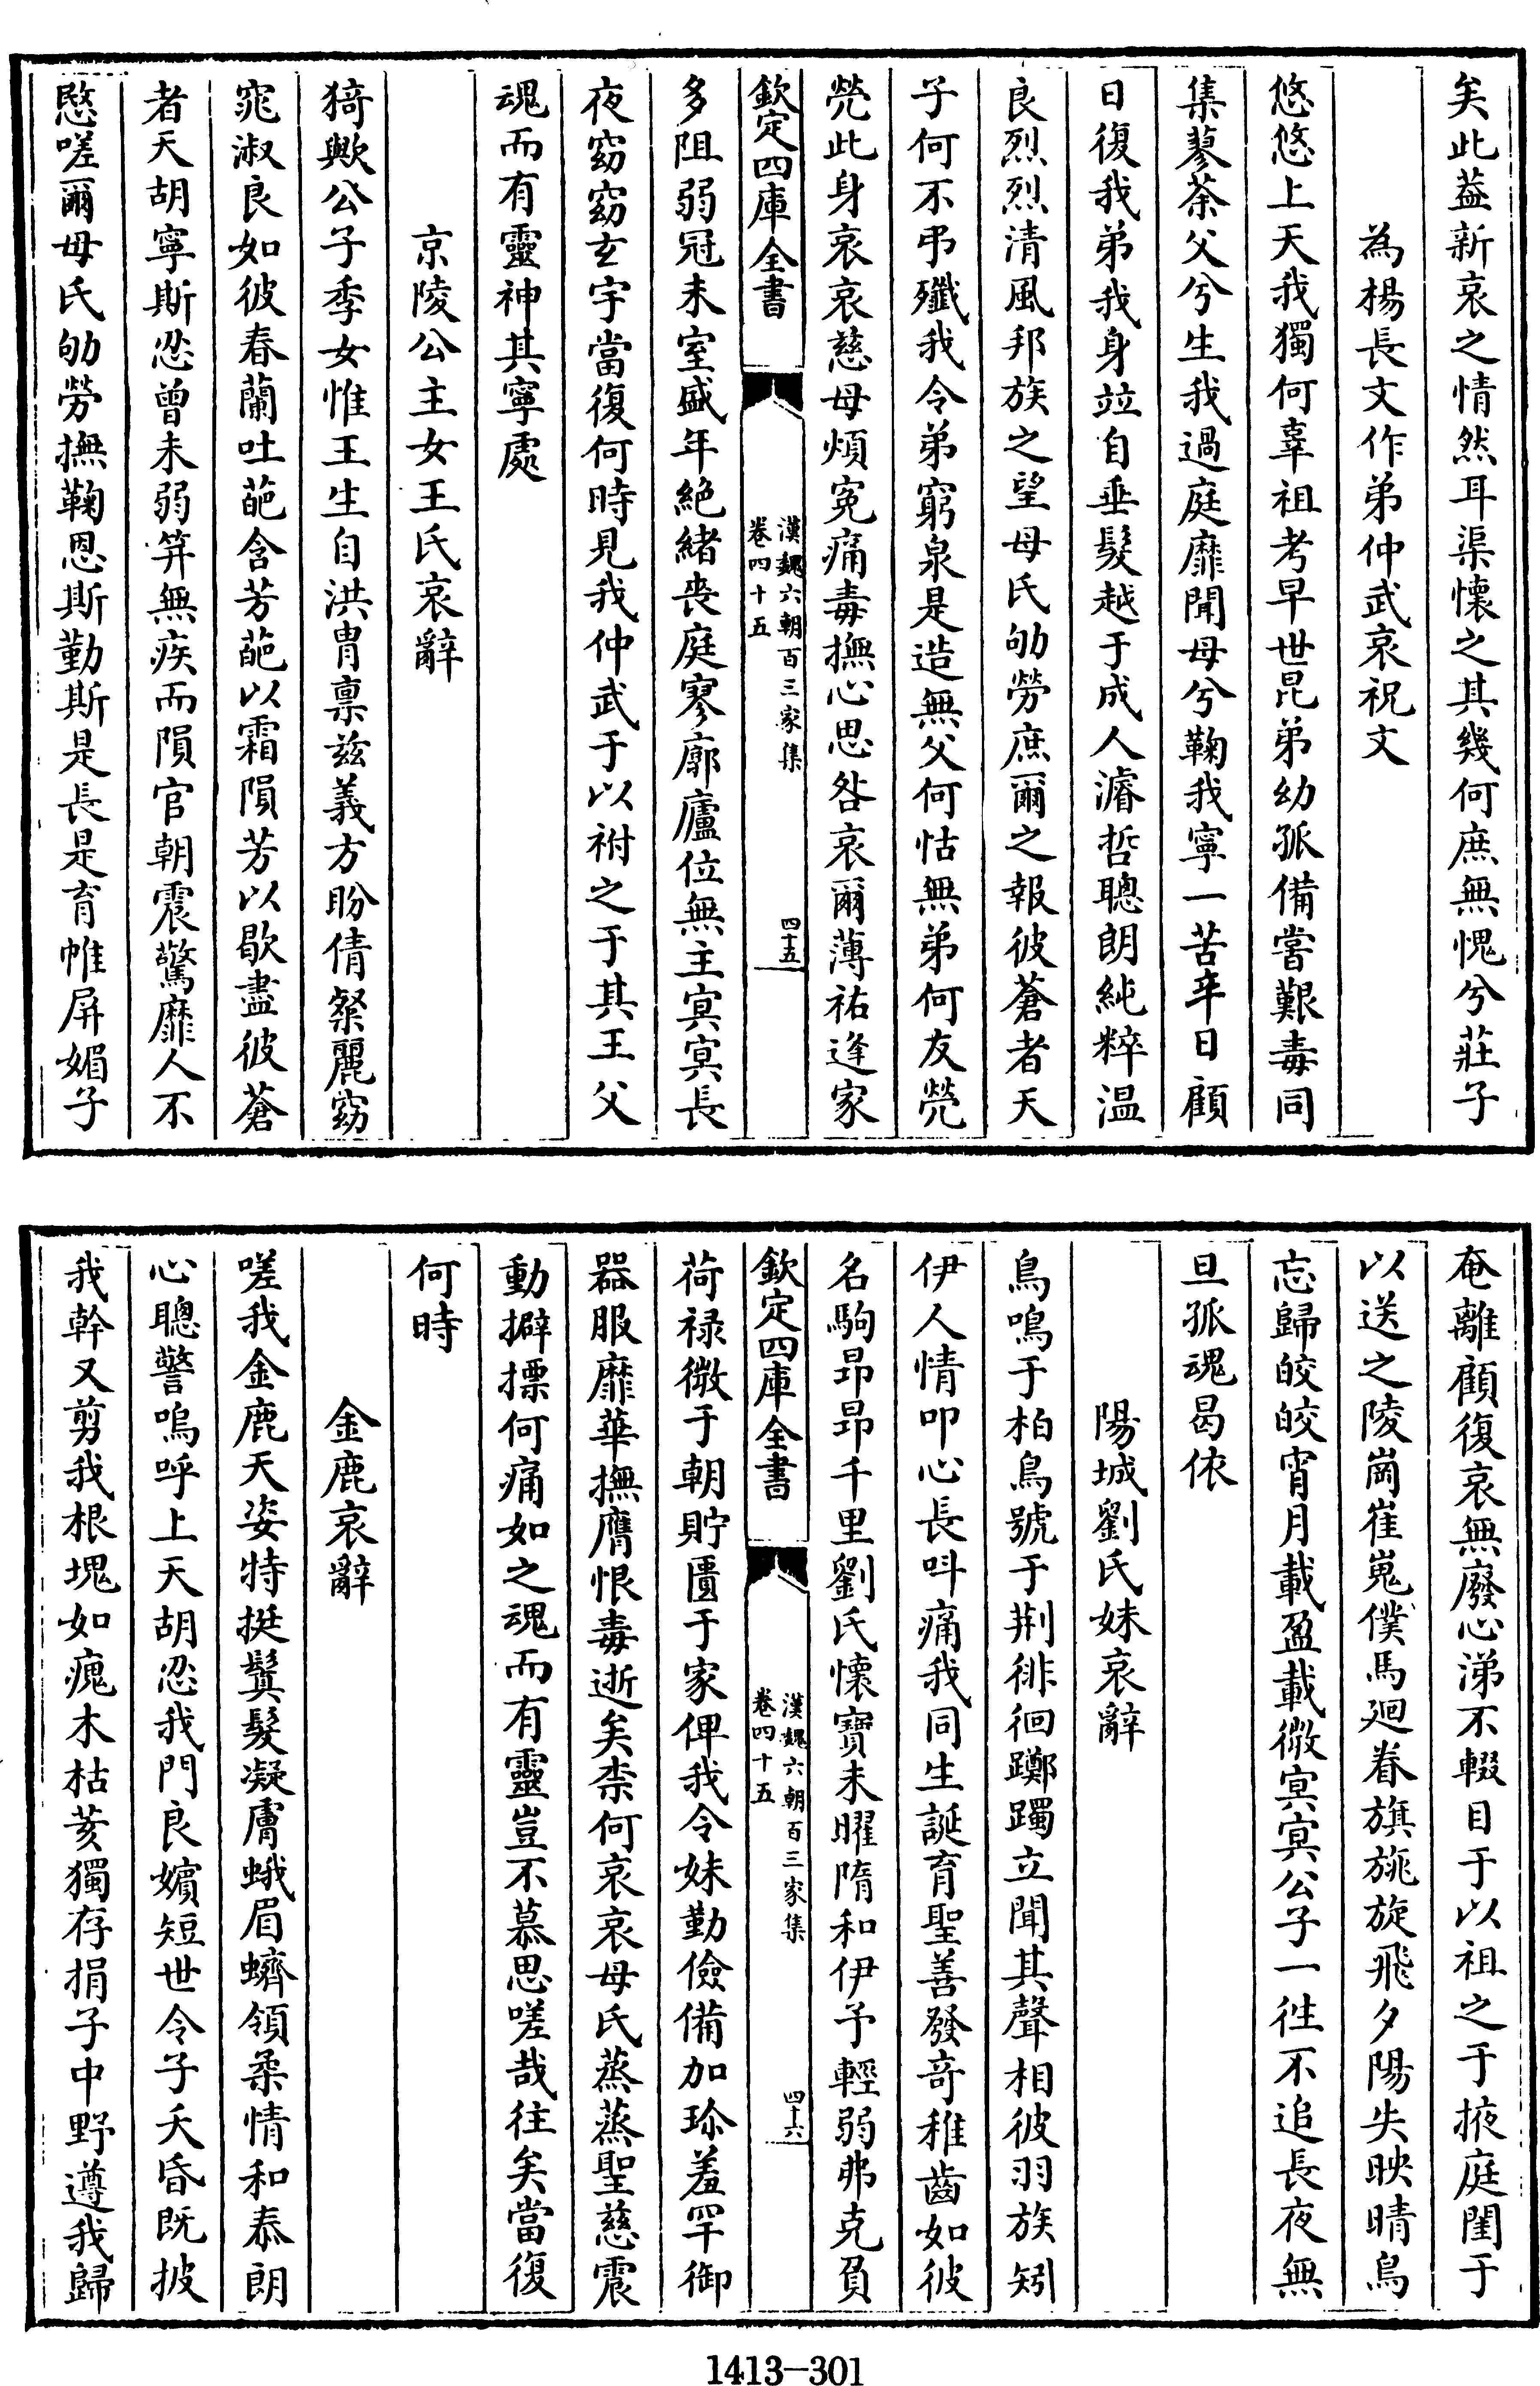 矣此葢新哀之情然耳渠懷之其幾何庶無愧兮莊子
為楊長文作弟仲武哀祝文
悠悠上天我獨何辜祖考早世昆弟幼孤備嘗艱毒同
集蓼荼父兮生我過庭靡聞母兮鞠我寧一苦辛日顧
日復我弟我身竝自垂髮越于成人濬哲聰朗純粹温
良烈烈清風邦族之望母氏劬勞庶爾之報彼蒼者天
子何不弔殲我令弟窮泉是造無父何怙無弟何友煢
煢此身哀哀慈母煩寃痛毒撫心思咎哀爾薄祐逢家
欽定四庫全書
漢魏六朝百三家集
卷四十五
四十五
多阻弱冠未室盛年絶緒喪庭寥廓廬位無主冥冥長
夜窈窈玄宇當復何時見我仲武于以祔之于其王父
魂而有靈神其寧處
京陵公主女王氏哀辭
猗歟公子季女惟王生自洪胄禀兹義方盼倩粲麗窈
窕淑良如彼春蘭吐葩含芳葩以霜隕芳以歇盡彼蒼
者天胡寧斯忍曾未弱筓無疾而隕官朝震驚靡人不
愍嗟爾母氏劬勞撫鞠恩斯勤斯是長是育帷屏媚子
奄離顧復哀無廢心涕不輟目于以祖之于掖庭闈于
以送之陵崗崔嵬僕馬廻眷旗旐旋飛夕陽失映晴鳥
忘歸皎皎宵月載盈載微冥冥公子一徃不追長夜無
旦孤魂曷依
陽城劉氏妹哀辭
鳥鳴于柏烏號于荆徘徊躑躅立聞其聲相彼羽族矧
伊人情叩心長叫痛我同生誕育聖善發竒稚齒如彼
名駒昂昂千里劉氏懷寶未曜隋和伊予輕弱弗克負
欽定四庫全書
漢魏六朝百三家集
卷四十五
四十六
荷禄微于朝貯匱于家俾我令妹勤儉備加珍羞罕御
器服靡華撫膺恨毒逝矣柰何哀哀母氏蒸蒸聖慈震
動擗摽何痛如之魂而有靈豈不慕思嗟哉往矣當復
何時
金鹿哀辭
嗟我金鹿天姿特挺鬒髮凝膚蛾眉蠐領柔情和泰朗
心聰警嗚呼上天胡忍我門良嬪短世令子夭昏既披
我幹又剪我根塊如瘣木枯荄獨存捐子中野遵我歸
1413—301